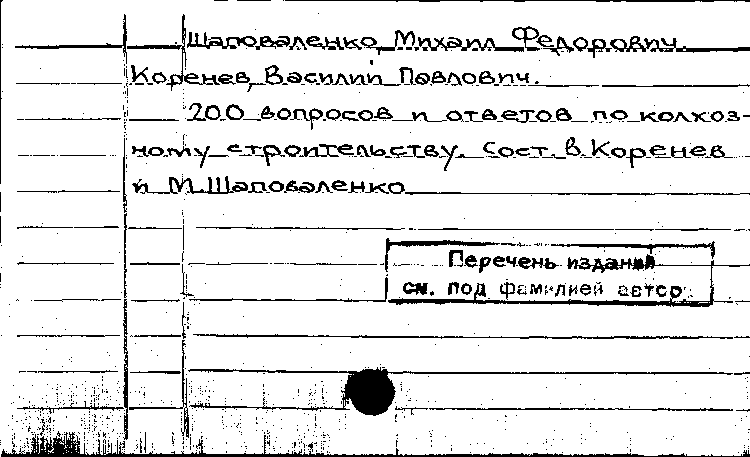 Шаповаленко, Михаил Федорович.
Коренев, Василий Павлович.
200 вопросов и ответов по колхоз-
ному строительству. Сост. В. Коренев
и М. Шаповаленко
Перечень изданий
см. под фамилией автор